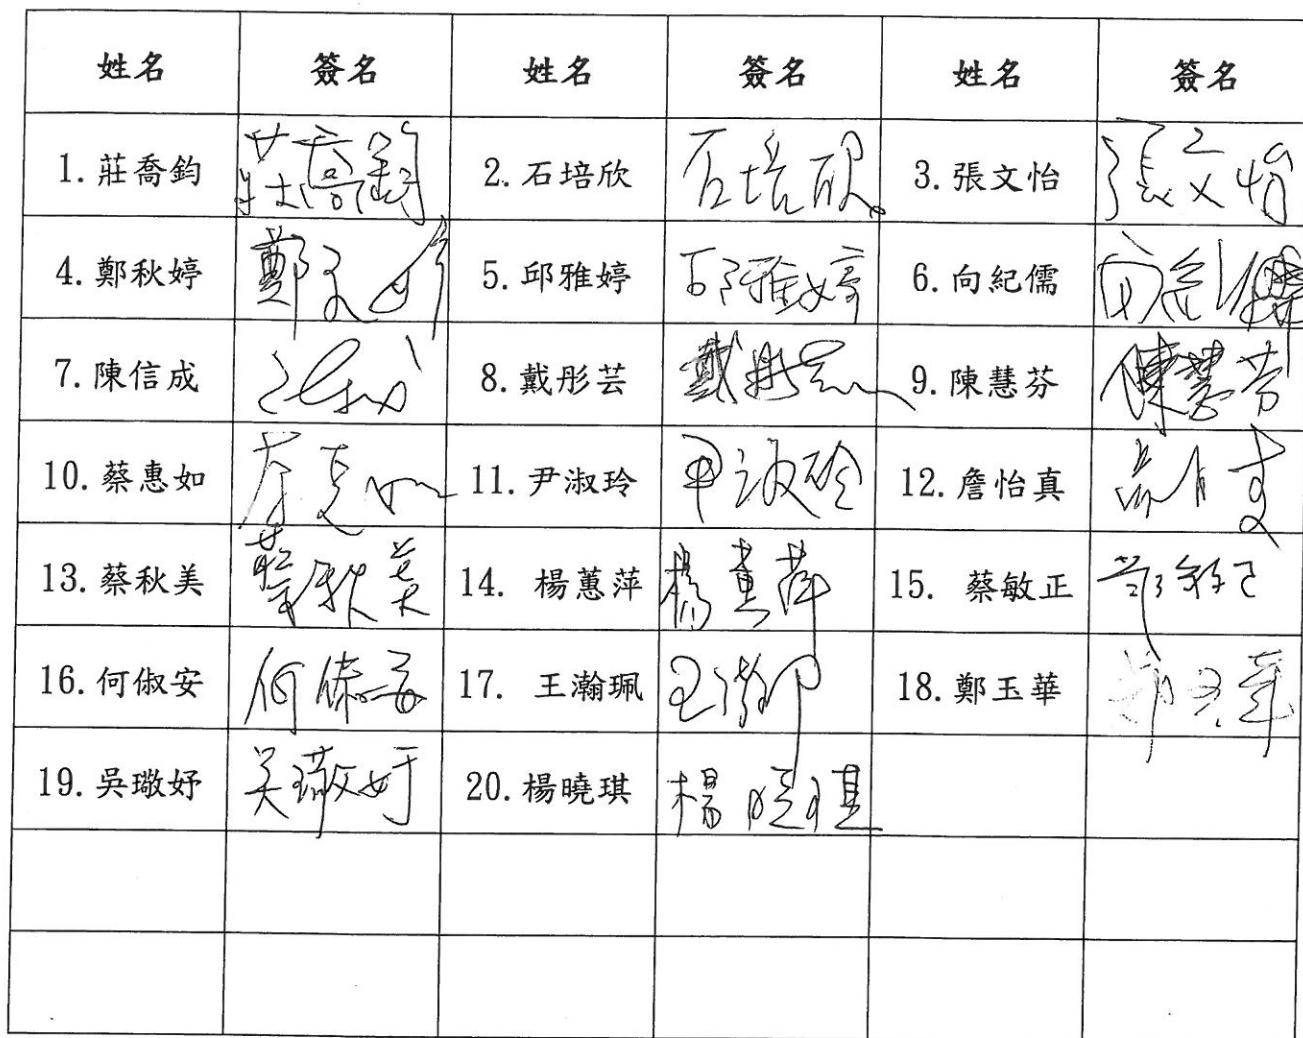 姓名 簽名 姓名 簽名 姓名 簽名
1.莊喬鈞 莊喬鈞 2.石培欣 石培欣 3.張文怡 張文怡
4.鄭秋婷 鄭 5.邱雅婷 邱雅婷 6.向紀儒 向紀儒
7.陳信成 8.戴彤芸 戴彤芸 9.陳慧芬 陳慧芬
10.蔡惠如 11.尹淑玲 尹淑玲 12.詹怡真
13.蔡秋美 蔡秋美 14. 楊蕙萍 楊蕙萍 15. 蔡敏正
16.何俶安 何俶安 17. 王瀚珮 王瀚珮 18.鄭玉華 鄭玉華
19.吳璥妤 吳璥妤 20.楊曉琪 楊曉琪